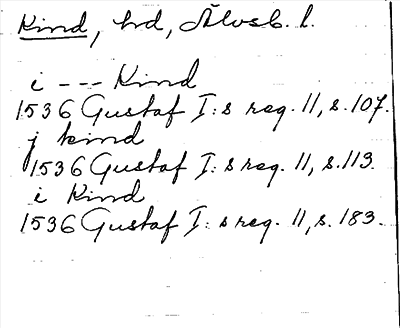 Kind, hd, Älvsb. l.
i --- Kind
1536 Gustaf I:s reg. 11, s. 107.
j kind
1536 Gustaf I:s reg. 11, s. 113.
i Kind
1536 Gustaf I:s reg. 11, s. 183.